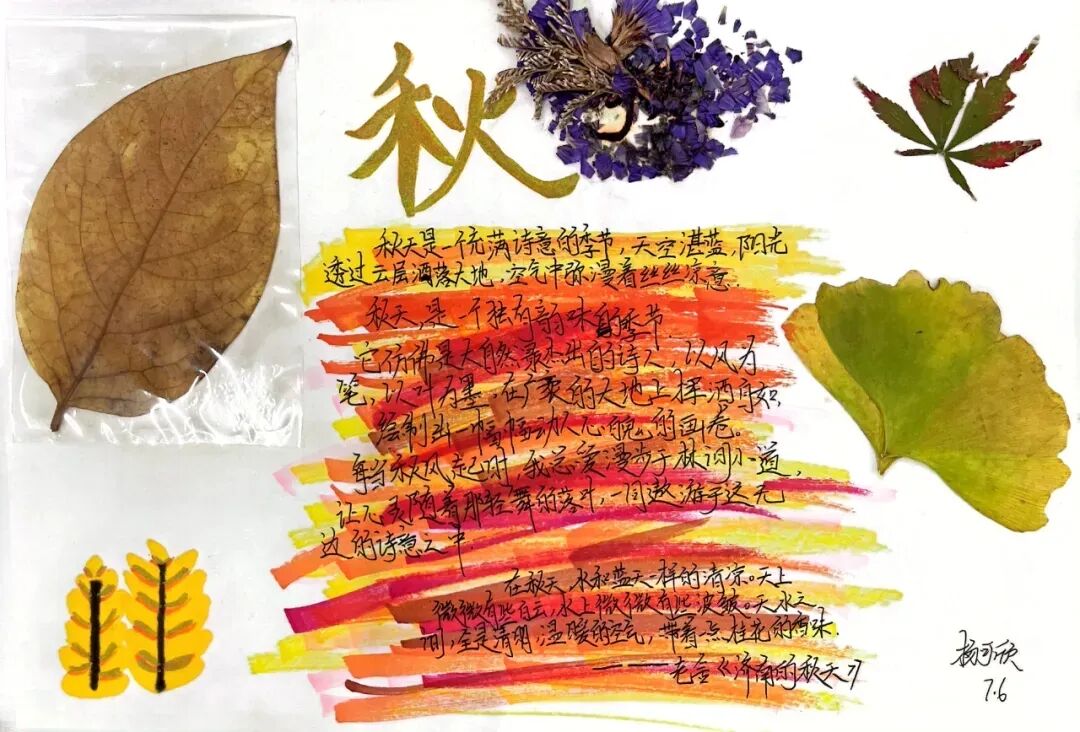 秋
秋天是一个充满诗意的季节，天空湛蓝，阳光
透过云层洒落大地，空气中弥漫着丝丝凉意.
秋天，是一个独有韵味的季节
它仿佛是大自然最杰出的诗人，以风为
笔，以叶为墨，在广袤的天地上挥洒自如.
绘制出一幅幅动人心魄的画卷。
每当秋风起时，我总爱漫步于林间小道，
让心灵随着那轻舞的落叶，一同遨游于这无
边的诗意之中.
在秋天，水和蓝天一样的清凉。天上
微微有些白云，水上微微有些波皱。天水之
间，全是清明，温暖的空气，带着一点桂花的香味.
———老舍《济南的秋天》
杨可欣
7.6